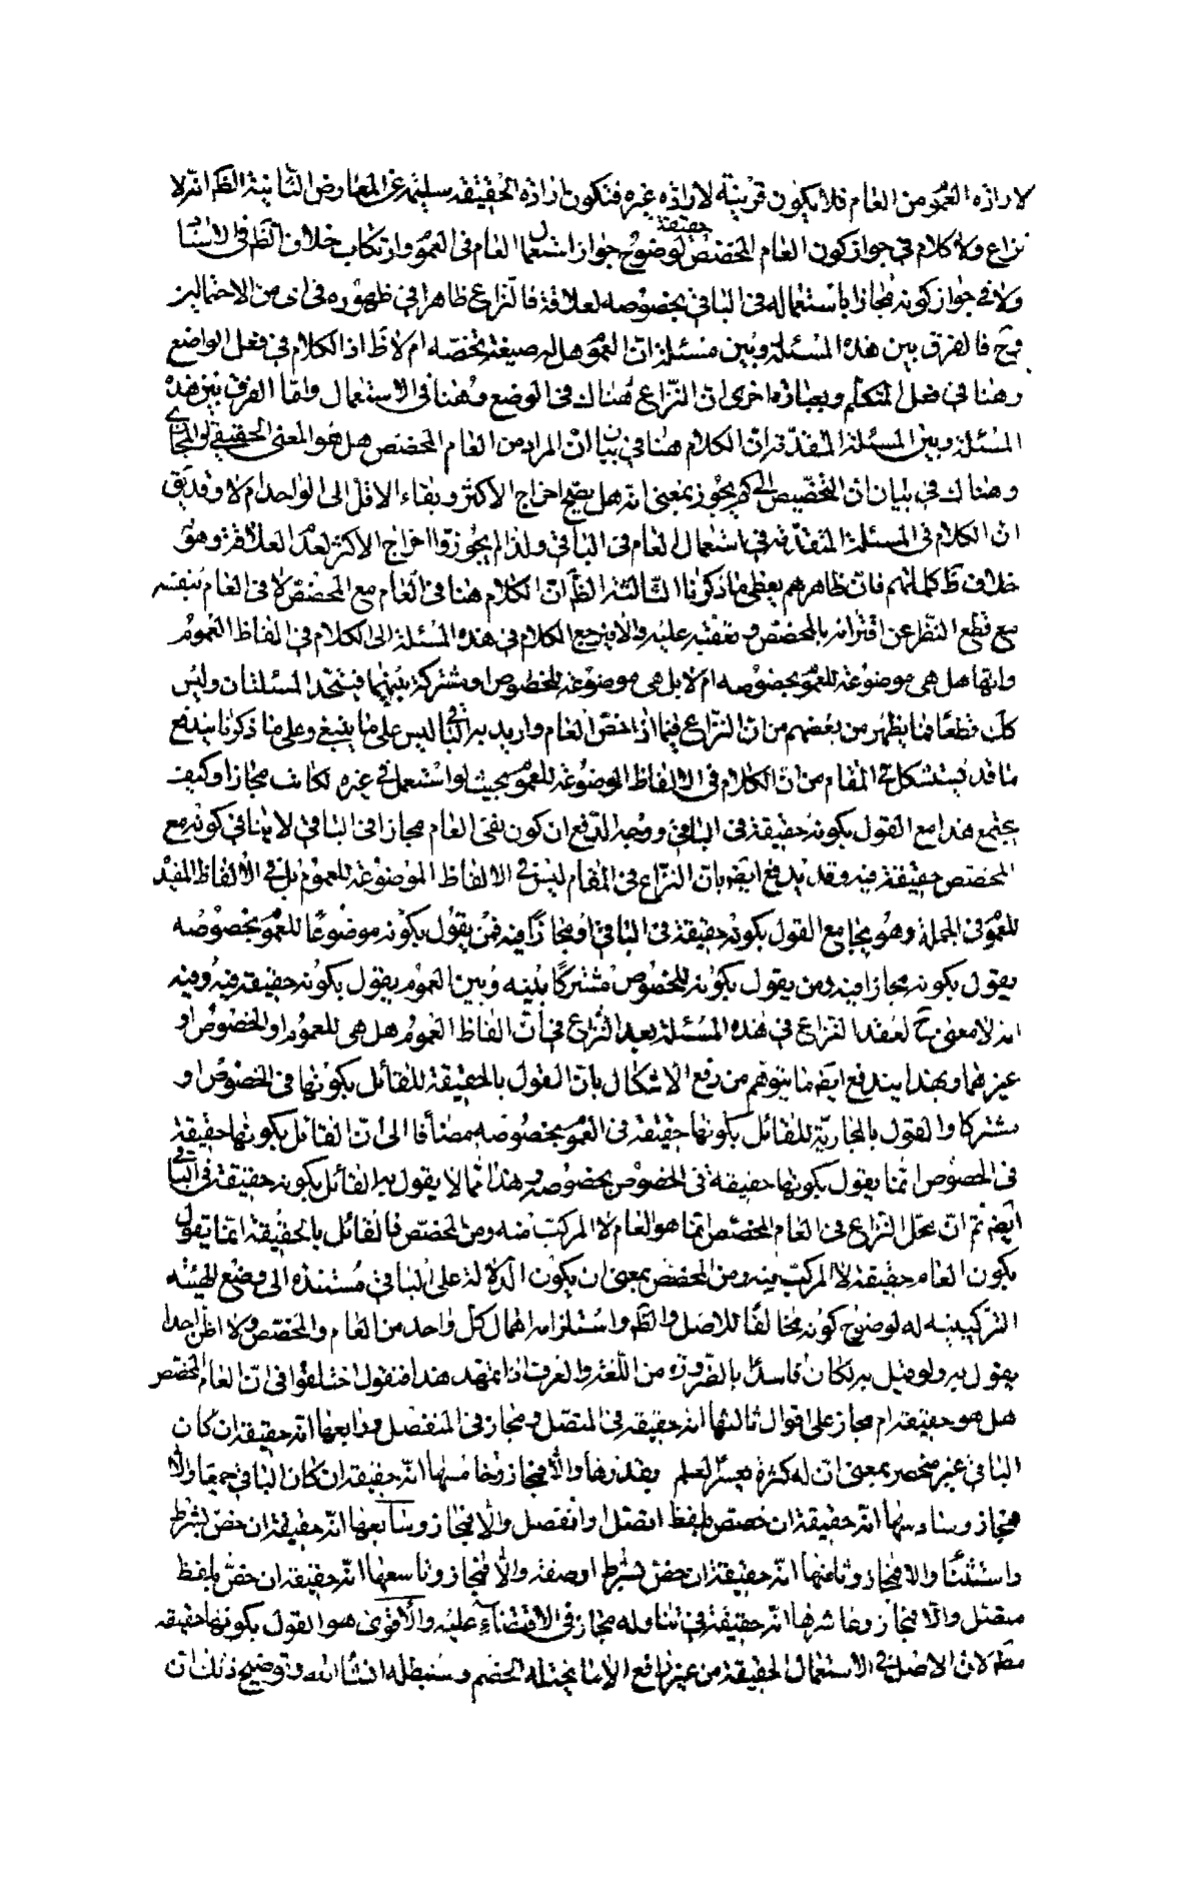 لارادة العموم من العام فلا يكون قرينة لارادة غيره فتكون ارادة الحقيقة سليمة عن المعارض الثانية الظم انه لا
نزاع ولا كلام في جواز كون العام المخصص حقيقة لوضوح جواز استعمال العام في العموم وارتكاب خلاف الظم في الاسناد
ولا في جواز كونه مجازا باستعماله في الباقي بخصوصه لعلاقة فالنزاع ظاهرا في ظهوره في اى من الاحتمالين
وح فالفرق بين هذه المسئلة وبين مسئلة ان العموم هل له صيغة تخصه ام لا ظ اذ الكلام في فعل الواضع
وهنا في فعل المتكلم وبعبارة اخرى ان النزاع هناك في الوضع وهنا في الاستعمال واما الفرق بين هذه
المسئلة وبين المسئلة المتقدمة ان الكلام هنا في بيان ان المراد من العام المخصص هل هو المعنى الحقيقي او المجازي
وهناك في بيان ان التخصيص الى كم يجوز بمعنى انه هل يصح اخراج الاكثر وبقاء الاقل الى الواحد ام لا وقد يق
ان الكلام في المسئلة المتقدمة في استعمال العام في الباقي ولذا لم يجوزوا اخراج الاكثر لعدم العلاقة وهو
خلاف ظ كلماتهم فان ظاهرهم يعطي ما ذكرنا الثالثة الظ ان الكلام هنا في العام مع المخصص لا في العام بنفسه
مع قطع النظر عن اقترانه بالمخصص وتعقبه عليه والا يرجع الكلام في هذه المسئلة الى الكلام في الفاظ العموم
وانها هل هي موضوعة للعموم بخصوصه ام لا بل هي موضوعة للخصوص او مشتركة بينهما فيتحد المسئلتان وليس
كك قطعا فما يظهر من بعضهم من ان النزاع فيما اذا خص العام واريد به الباقي ليس على ما ينبغي وعلى ما ذكرنا يندفع
ما قد يستشكل في المقام من ان الكلام في الالفاظ الموضوعة للعموم بحيث لو استعمل في غيره لكانت مجازا وكيف
يجتمع هذا مع القول بكونه حقيقة في الباقي ووجه الدفع ان كون نفس العام مجازا في الباقي لا ينافي كونه مع
المخصص حقيقة فيه وقد يدفع ايضا بان النزاع في المقام ليس في الالفاظ الموضوعة للعموم بل في الالفاظ المفيدة
للعموم في الجملة وهو يجامع القول بكونه حقيقة في الباقي او مجازا فيه فمن يقول بكونه موضوعا للعموم بخصوصه
يقول بكونه مجازا فيه ومن يقول بكونه للخصوص مشتركا بينه وبين العموم يقول بكونه حقيقة فيه وفيه
انه لا معنى ح لعقد النزاع في هذه المسئلة بعد النزاع في ان الفاظ العموم هل هي للعموم او الخصوص او
غيرهما وبهذا يندفع ايضا ما يتوهم من رفع الاشكال بان القول بالحقيقة للقائل بكونها في الخصوص او
مشتركا والقول بالمجازية للقائل بكونها حقيقة في العموم بخصوصه مضافا الى ان القائل بكونها حقيقة
في الخصوص انما يقول بكونها حقيقة في الخصوص بخصوصه وهذا مما لا يقول به القائل بكونه حقيقة في الباقي
ايضا ثم ان محل النزاع في العام المخصص انما هو العام لا المركب منه ومن المخصص فالقائل بالحقيقة انما يقول
بكون العام حقيقة لا المركب منه ومن المخصص بمعنى ان يكون الدلالة على الباقي مستندة الى وضع الهيئة
التركيبية له لوضوح كونه مخالفا للاصل والظم واستلزامه اهمال كل واحد من العام والمخصص ولا اظن احدا
يقول به ولو قيل به لكان فاسدا بالضرورة من اللغة والعرف اذا تمهد هذا فنقول اختلفوا في ان العام المخصص
هل هو حقيقة ام مجاز على اقوال ثالثها انه حقيقة في المتصل ومجاز في المنفصل ورابعها انه حقيقة ان كان
الباقي غير منحصر بمعنى ان له كثرة يعسر العلم بقدرها والا فمجاز وخامسها انه حقيقة ان كان الباقي جمعا والا
فمجاز وسادسها انه حقيقة ان خصص بلفظ اتصل او انفصل والا فمجاز وسابعها انه حقيقة ان خص بشرط
واستثناء والا فمجاز وثامنها انه حقيقة ان خص بشرط او صفة والا فمجاز وتاسعها انه حقيقة ان خص بلفظ
متصل والا فمجاز وعاشرها انه حقيقة في تناوله مجاز في الاقتصار عليه والاقوى هو القول بكونها حقيقة
مطم لان الاصل في الاستعمال الحقيقة من غير دافع الا ما يتخيله الخصم وسنبطله انشاء الله وتوضيح ذلك ان